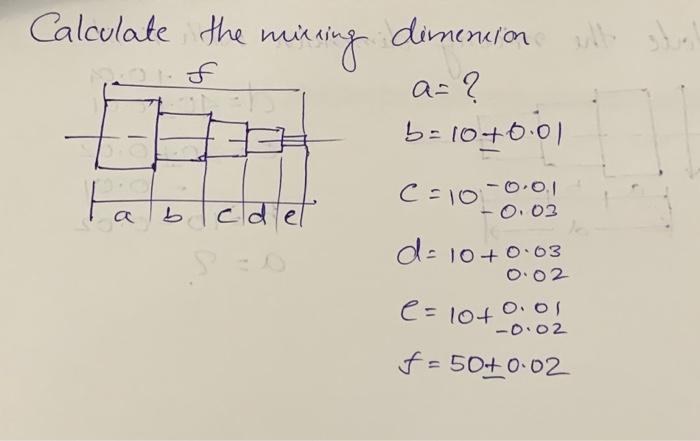 Calculate the missing dimension
f
a = ?
b = 10 ± 0.01
c = 10 -0.01
-0.03
a b c d e
d = 10 + 0.03
0.02
e = 10 + 0.01
-0.02
f = 50 ± 0.02